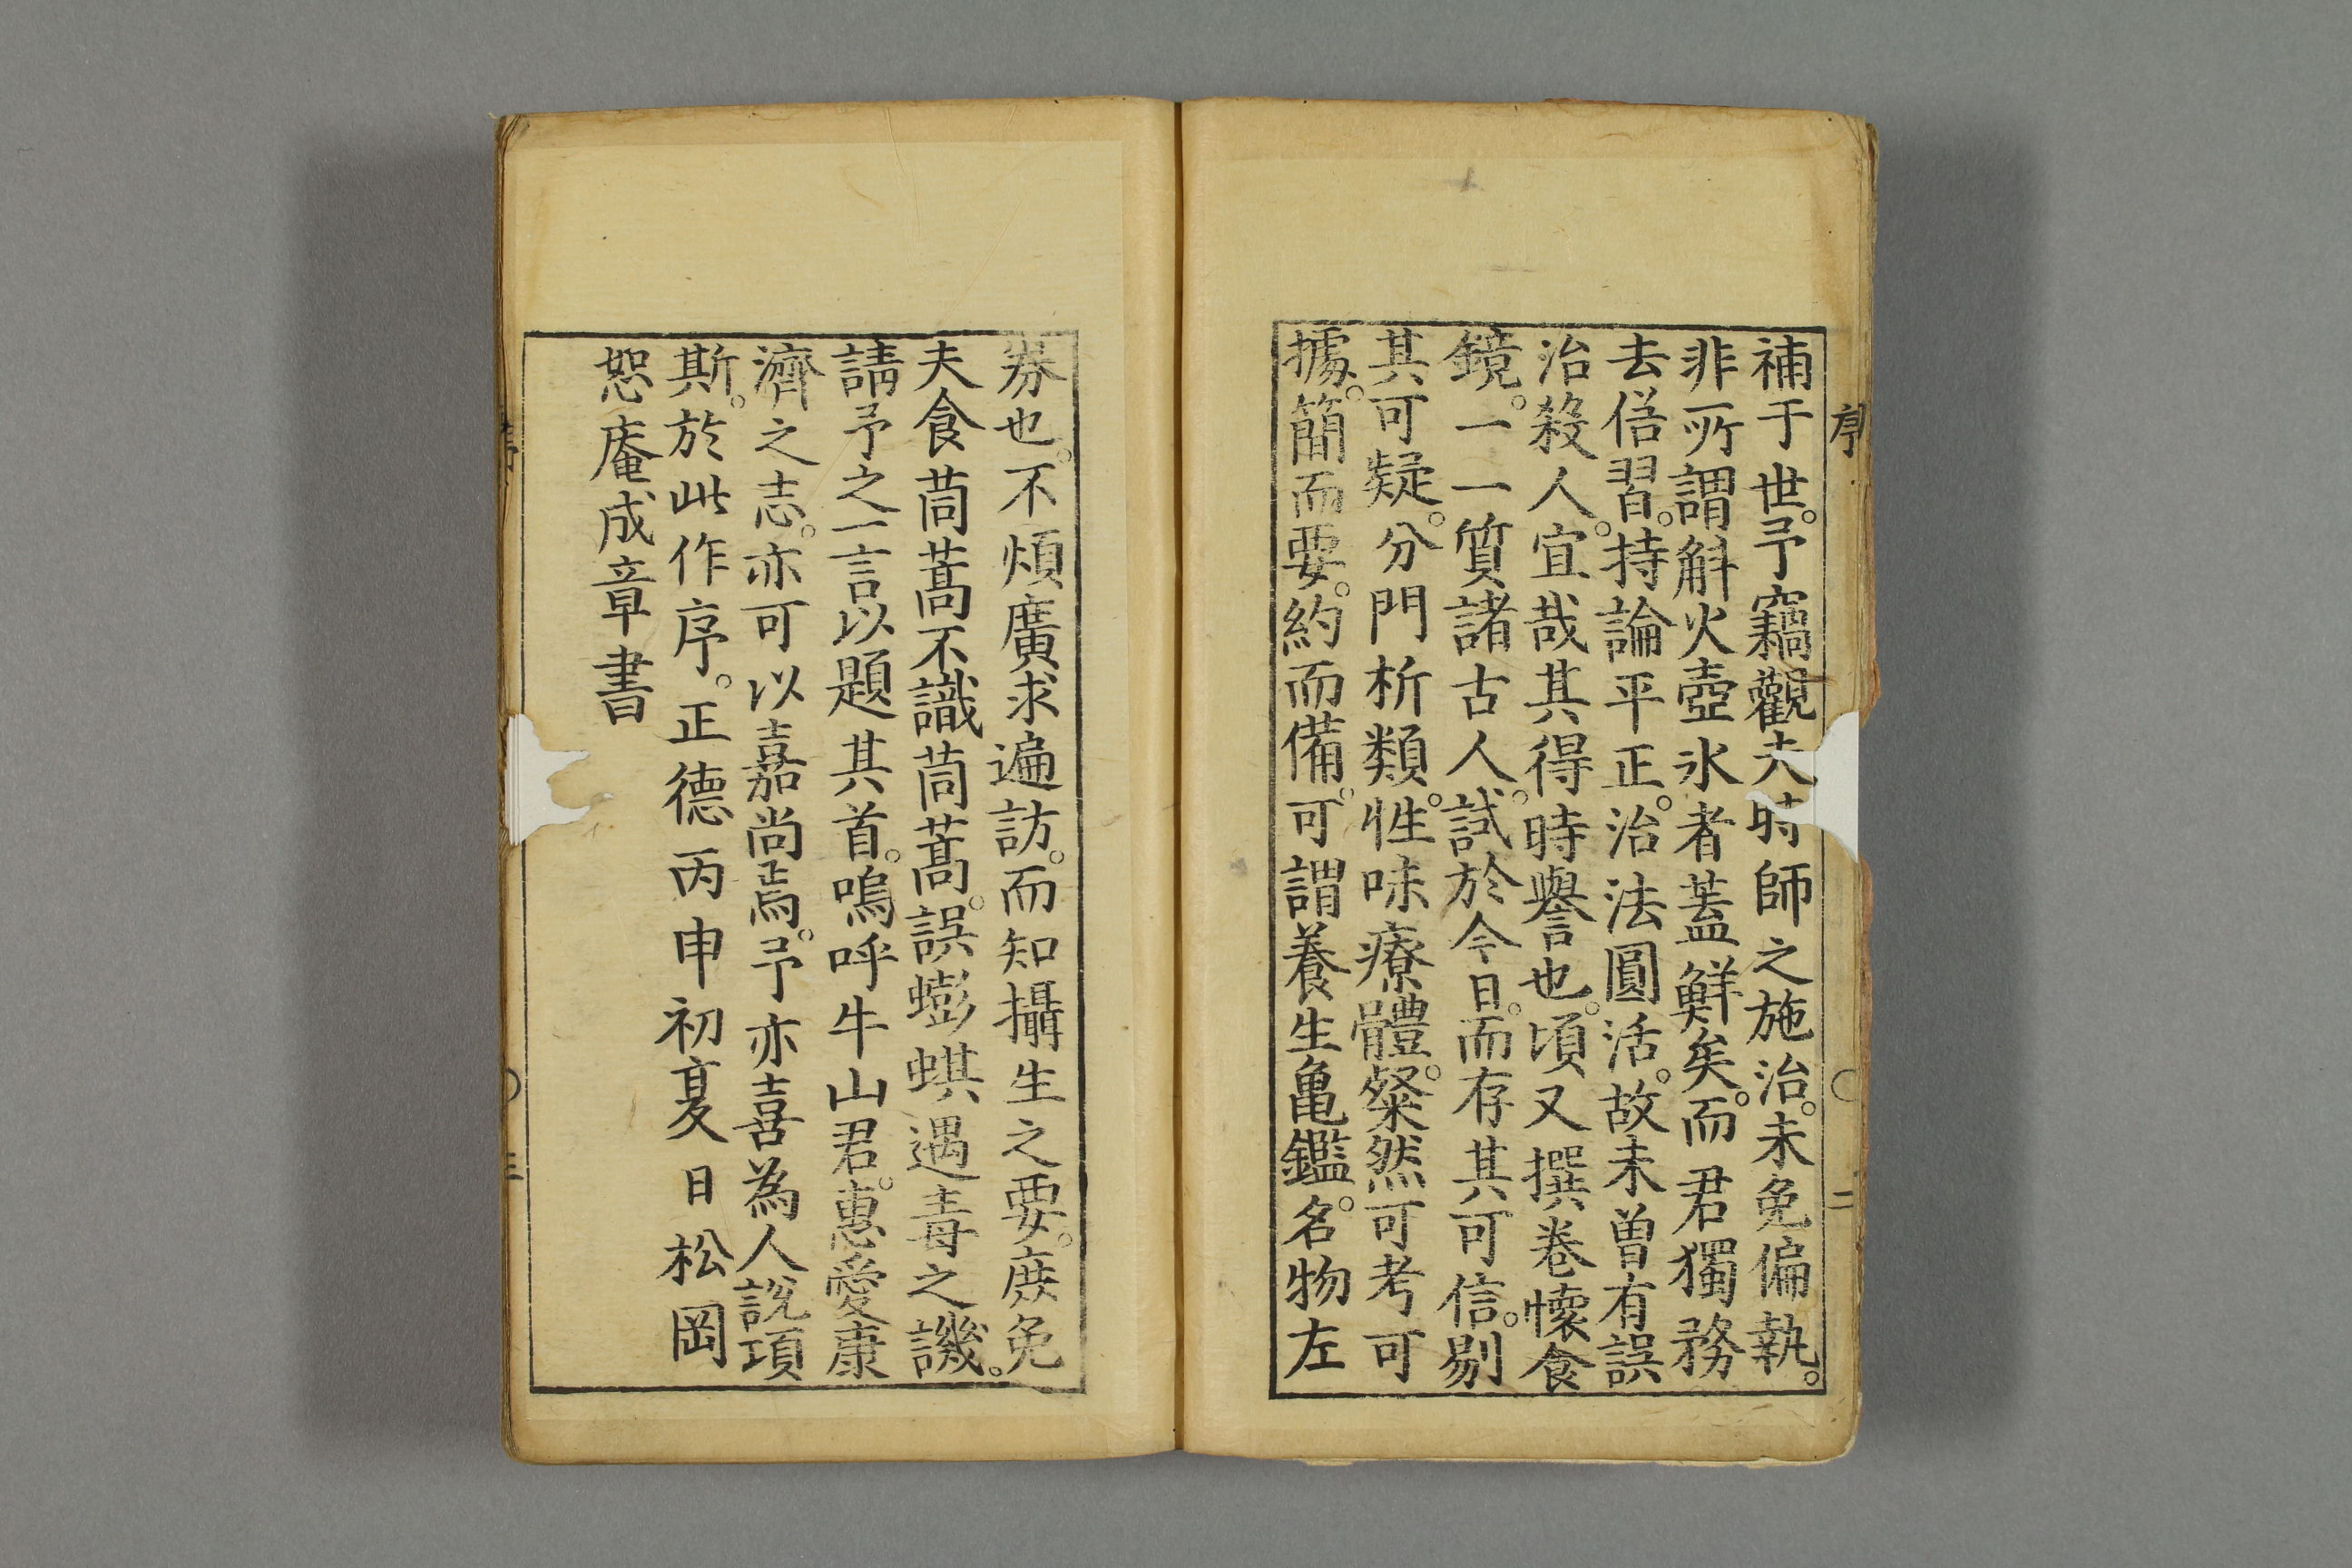 序
二
補于世。予竊觀夫時師之施治。未免偏執。
非所謂斛火壺氷者蓋鮮矣。而君獨務
去俗習。持論平正。治法圓活。故未曽有誤
治殺人。宜哉其得時譽也。頃又撰卷懷食
鏡。一一質諸古人。試於今日。而存其可信。剔
其可疑。分門析類。性味療體。粲然可考可
據。簡而要。約而備。可謂養生亀鑑。名物左
券也。不煩廣求遍訪。而知攝生之要。庶免
夫食茼蒿不識茼蒿。誤蟛蜞遇毒之譏。
請予之一言以題其首。嗚呼牛山君。惠愛康
濟之志。亦可以嘉尚焉。予亦喜為人說項
斯。於此作序。正德丙申初夏日松岡
恕庵成章書
三